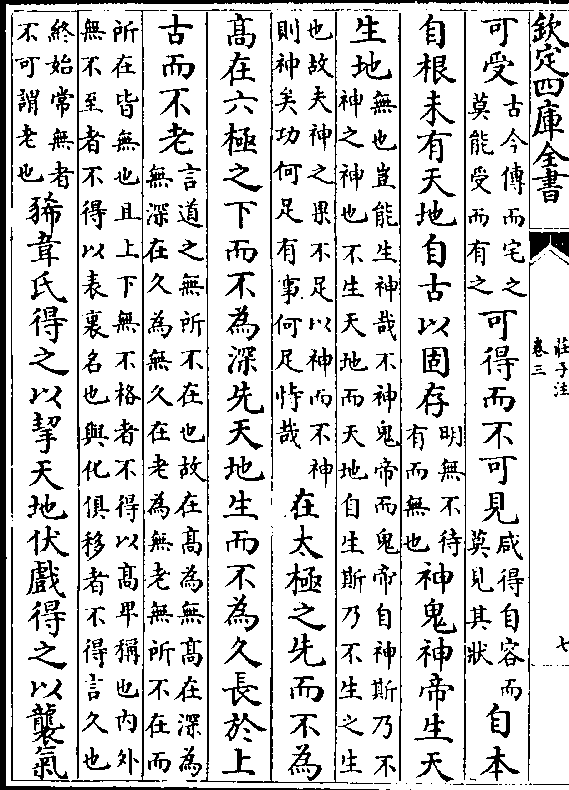 欽定四庫全書
莊子注
卷三
七
可受
古今傳而宅之
莫能受而有之
可得而不可見
咸得自容而
莫見其狀
自本
自根未有天地自古以固存
明無不待
有而無也
神鬼神帝生天
生地
無也豈能生神哉不神鬼帝而鬼帝自神斯乃不
神之神也不生天地而天地自生斯乃不生之生
也故夫神之果不足以神而不神
則神矣功何足有事何足恃哉
在太極之先而不為
髙在六極之下而不為深先天地生而不為久長於上
古而不老
言道之無所不在也故在髙為無髙在深為
無深在久為無久在老為無老無所不在而
所在皆無也且上下無不格者不得以髙卑稱也內外
無不至者不得以表裏名也與化俱移者不得言久也
終始常無者
不可謂老也
豨韋氏得之以挈天地伏戲得之以襲氣